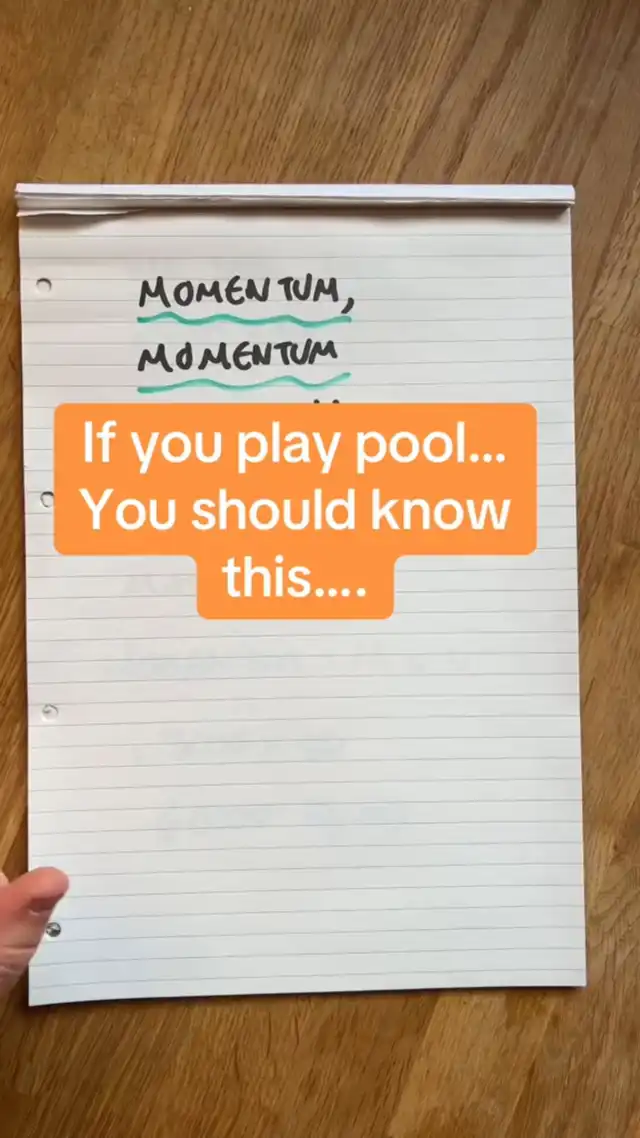 MOMENTUM,
MOMENTUM
If you play pool...
You should know
this....